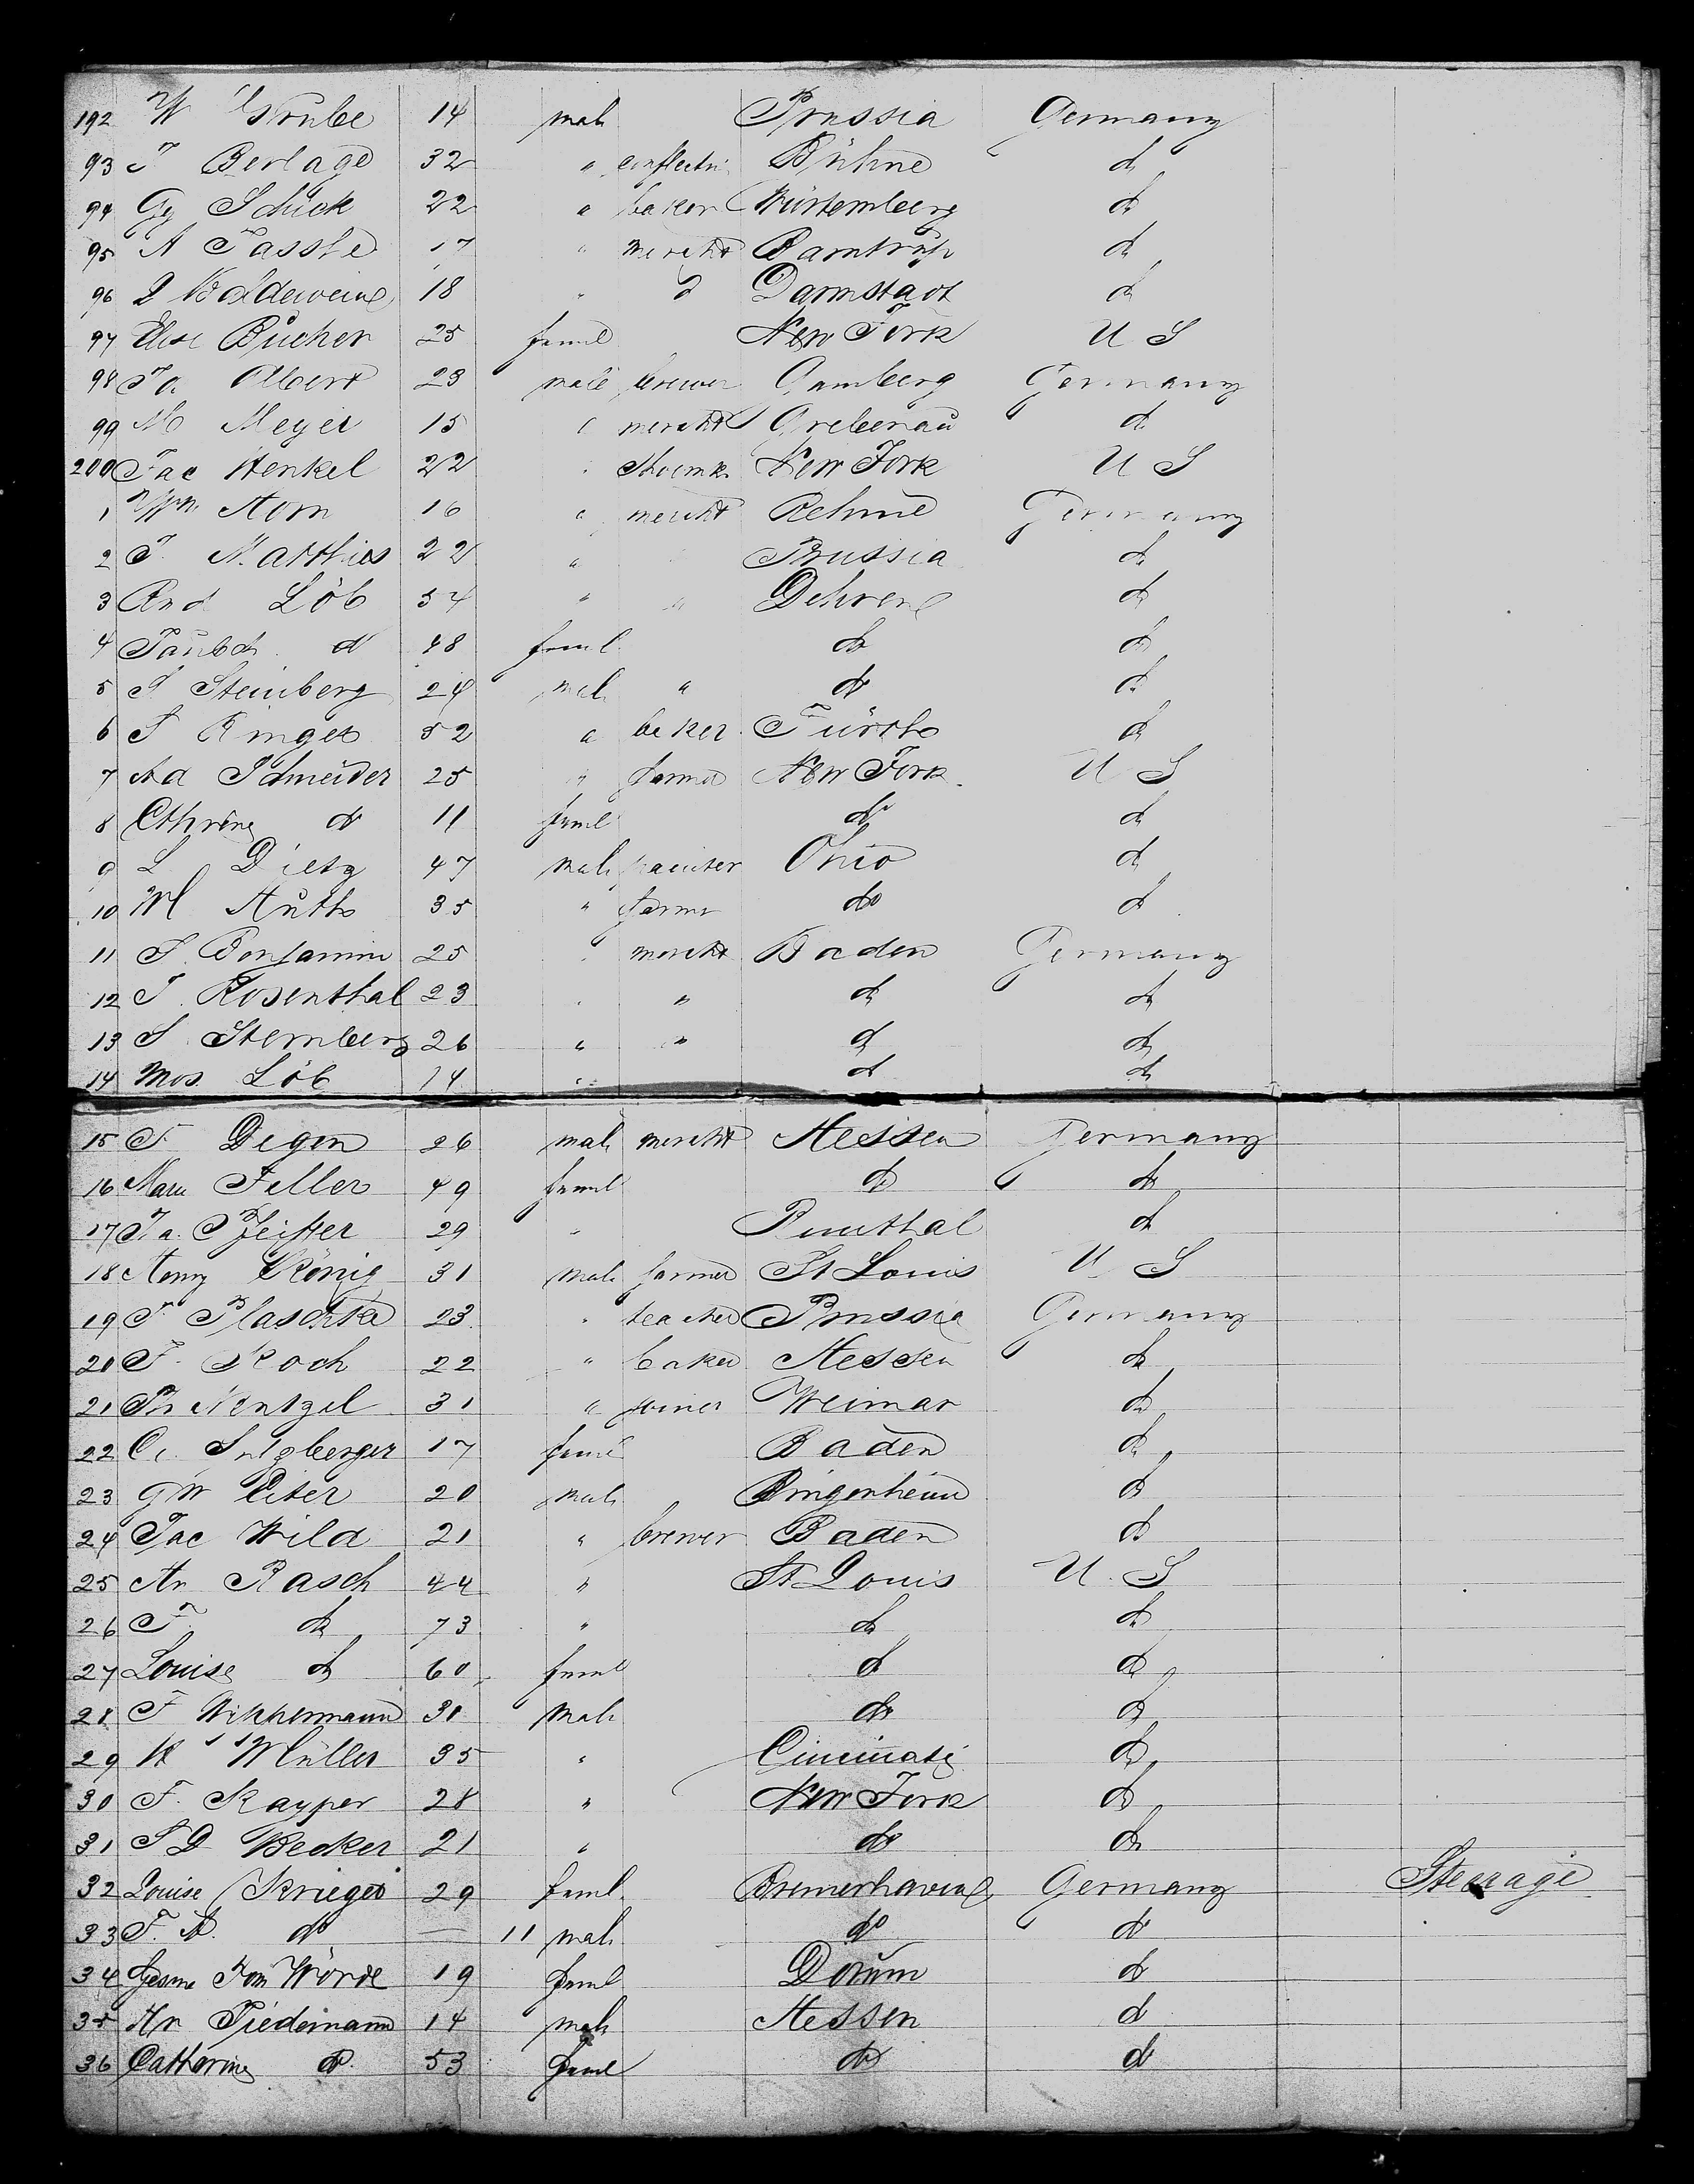 192 W Grube 14 male Prussia Germany
93 J Berlage 32 " Bühne do
94 Gg Schick 22 " baker Würtemberg do
95 A Tassle 17 " mercht Barntrup do
96 18 " d Darmstadt do
97 Elise Bücher 25 feml New York U S
98 Ja Albert 23 male brewer Gamberg Germany
99 M Meyer 15 " mercht Grebenau do
200 Jac Henkel 22 " Shoemkr New York U S
1 Wm Horn 16 " mercht Rehme Germany
2 J. Matthies 22 " Prussia do
3 And Löb 54 " " Dehren do
4 do 48 feml do do
5 S Steinberg 24 male " do do
6 S Ringer 52 " baker Fürth do
7 Ad Schneider 25 " farmer New York U S
8 Cthrine do 11 feml do do
9 L Dietz 47 male painter Ohio do
10 M Huth 35 " farmer do do
11 S. Benjamin 25 " mercht Baden Germany
12 J. Rosenthal 23 " " do do
13 S. Sternberg 26 " " do do
14 Mos. Löb 14 " do do
15 F Degen 26 male mercht Hessen Germany
16 Marie Feller 49 feml do do
17 Ja. Pfeiffer 29 " do
18 Henry König 31 male farmer St Louis U S
19 F. Plaschke 23 " teacher Prussia Germany
20 F. Koch 22 " baker Hessen do
21 Th Wentzel 31 " joiner Weimar do
22 Sulzberger 17 feml Baden do
23 G W Eiser 20 male Bingenheim do
24 Jac Wild 21 " brewer Baden do
25 An Rasch 44 " St Louis U. S
26 F. do 73 " do do
27 Louise do 60 feml do do
28 F Wippermann 31 male do do
29 H Müller 35 " Cincinnati do
30 F. Kayper 28 " New York do
31 S D Becker 21 " do do
32 Louise Krieger 29 feml. Bremerhaven Germany Stearage
33 F. A. do — 11 male do do
34 Gesine Von Wörde 19 feml Dorum do
35 Hn Tiedemann 14 male Hessen do
36 Catharine do 53 feml do do